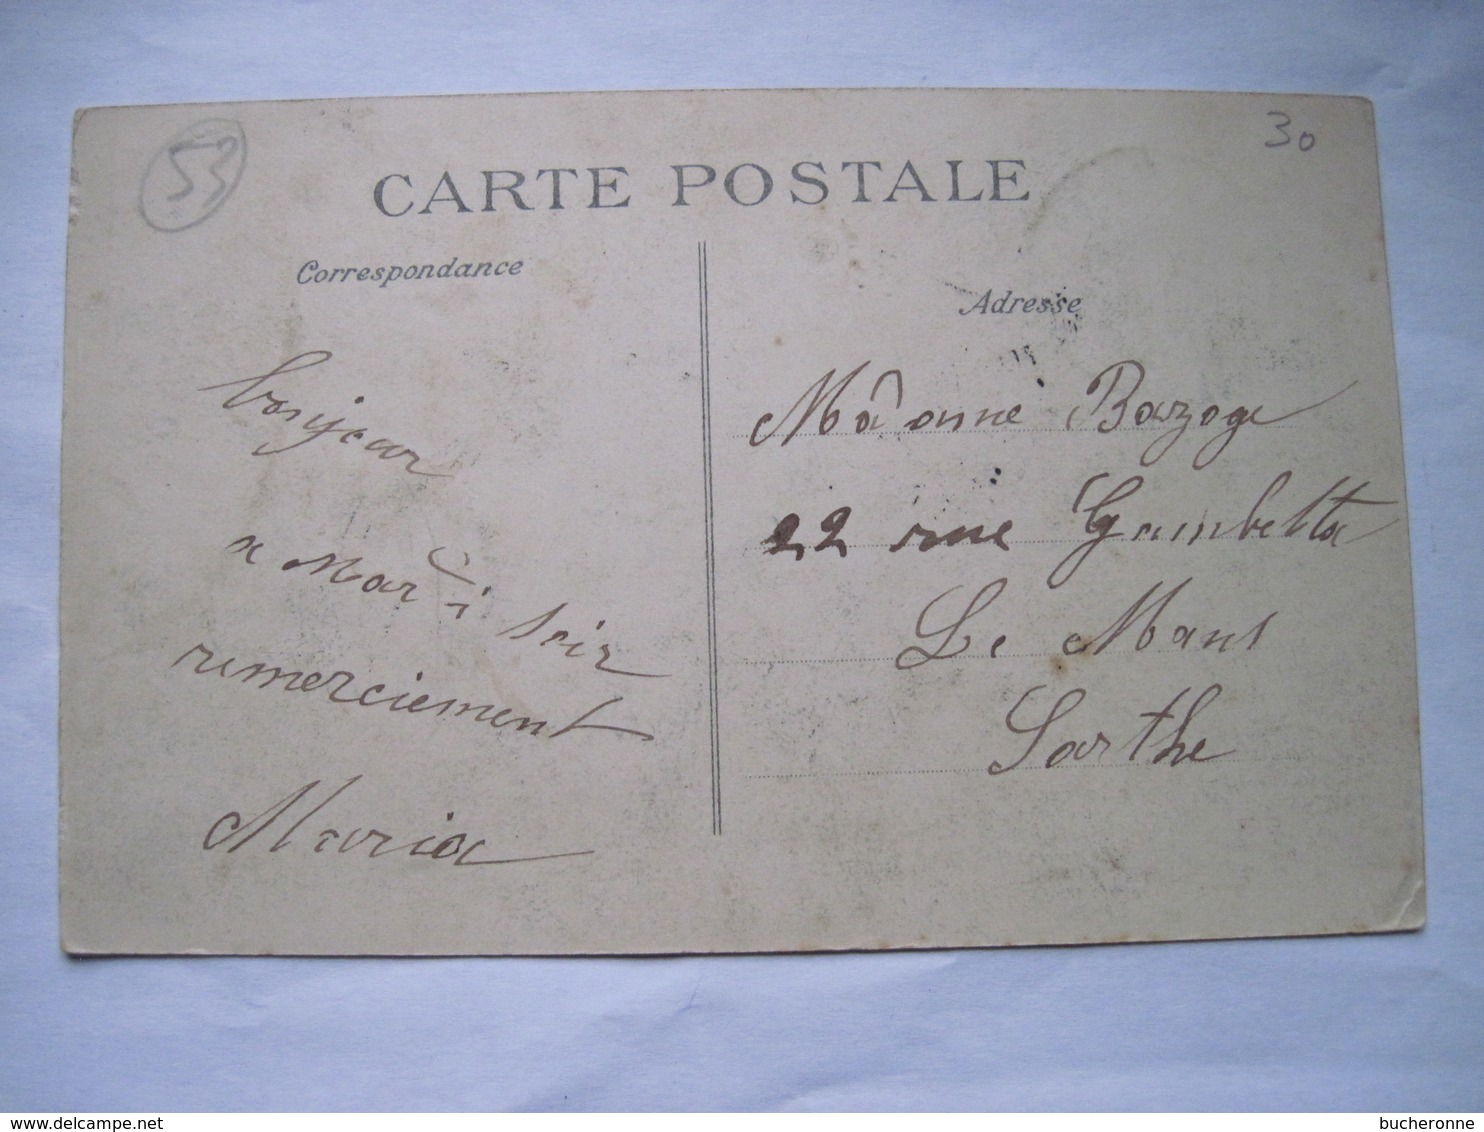 53
30
CARTE POSTALE
Correspondance
bonjour
a Mardi soir
remerciement
Maria
Adresse
Madame Bazoge
22 rue Gambetta
Le Mans
Sarthe
delcampe.net
bucheronne